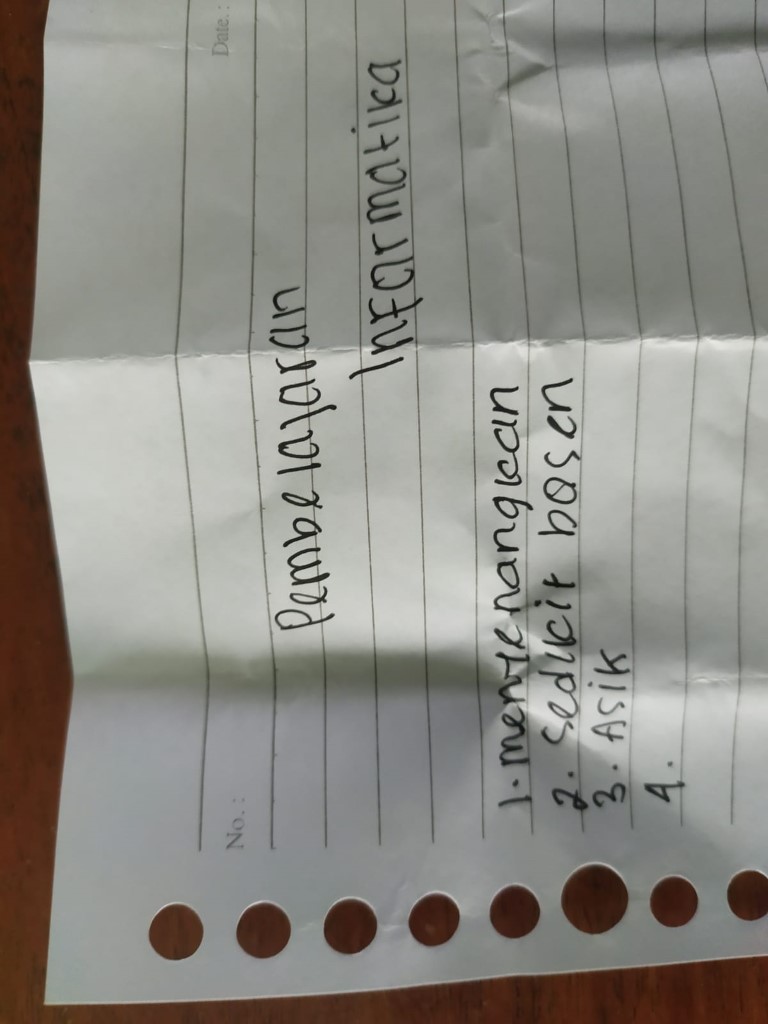 No.:
Date.:
Pembelajaran
Informatika
1. menyenangkan
2. sedikit bosen
3. Asik
4.